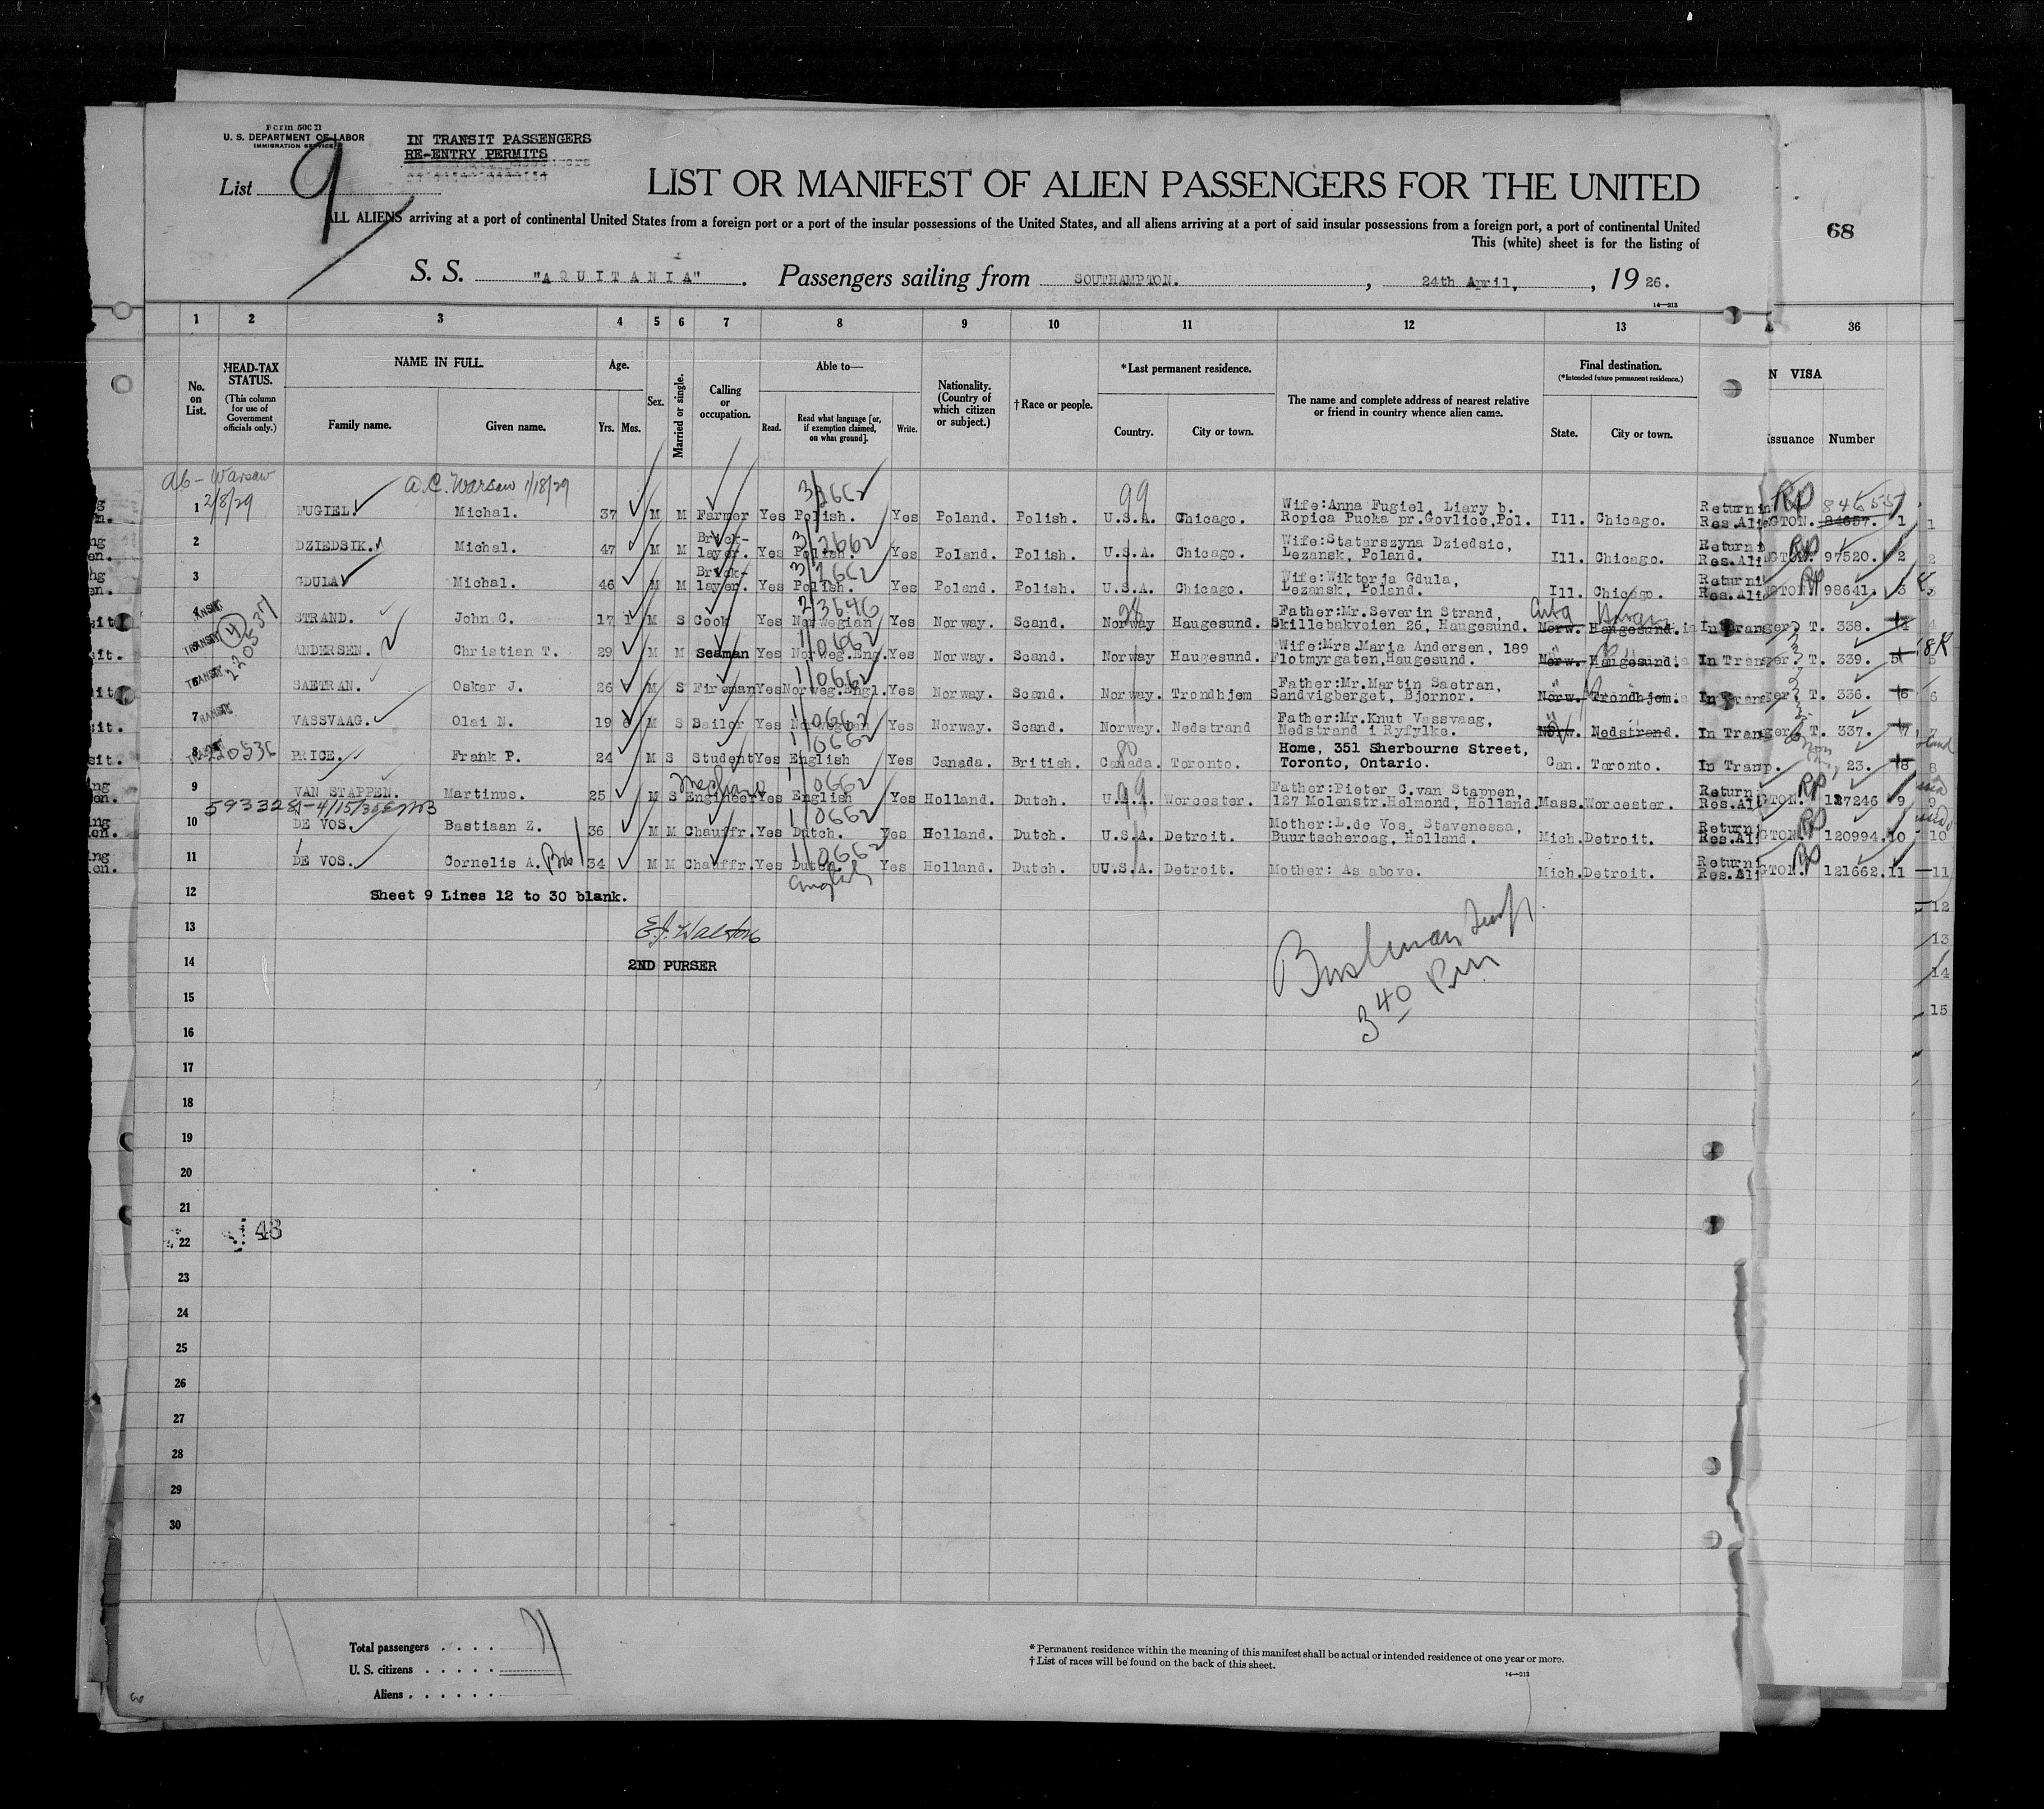 Form 500 B
U. S. DEPARTMENT OF LABOR
IMMIGRATION SERVICE
IN TRANSIT PASSENGERS
RE-ENTRY PERMITS
List 9
LIST OR MANIFEST OF ALIEN PASSENGERS FOR THE UNITED
ALL ALIENS arriving at a port of continental United States from a foreign port or a port of the insular possessions of the United States, and all aliens arriving at a port of said insular possessions from a foreign port, a port of continental United
This (white) sheet is for the listing of
68
S. S. "AQUITANIA". Passengers sailing from SOUTHAMPTON. , 24th April, , 19 26.
14—213
1 2 3 4 5 6 7 8 9 10 11 12 13 36
No. on List.
HEAD-TAX STATUS.
(This column for use of Government officials only.)
NAME IN FULL.
Family name. Given name.
Age.
Yrs. Mos.
Sex.
Married or single.
Calling or occupation.
Able to—
Read. Read what language [or, if exemption claimed, on what ground]. Write.
Nationality. (Country of which citizen or subject.)
†Race or people.
*Last permanent residence.
Country. City or town.
The name and complete address of nearest relative or friend in country whence alien came.
Final destination.
(*Intended future permanent residence.)
State. City or town.
N VISA
issuance Number
ab - Warsaw 2/8/29
A.C. Warsaw 1/18/29
1 FUGIEL. Michal. 37 M M Farmer Yes Polish. Yes Poland. Polish. U.S.A. Chicago. Wife:Anna Fugiel, Liary b. Ropica Pucka pr.Govlice,Pol. Ill. Chicago. Returnin Res.Alie GTON. 84657. 84655 1
2 DZIEDSIK. Michal. 47 M M Brick-layer. Yes Polish. Yes Poland. Polish. U.S.A. Chicago. Wife:Statarszyna Dziedsic, Lezansk, Poland. Ill. Chicago. Returni Res.Ali GTON. 97520. 2
3 GDULA Michal. 46 M M Brick-layer. Yes Polish. Yes Poland. Polish. U.S.A. Chicago. Wife:Wiktorja Gdula, Lezansk, Poland. Ill. Chicago. Returni Res.Ali GTON 98641. 3
4 STRAND. John C. 17 1 M S Cook Yes Norwegian Yes Norway. Scand. Norway Haugesund. Father:Mr.Severin Strand, Skillebakveien 26, Haugesund. Norw. Haugesund. Cuba In Tran T. 338. 4
5 ANDERSEN. Christian T. 29 M M Seaman Yes Norweg.Eng. Yes Norway. Scand. Norway Haugesund. Wife:Mrs.Maria Andersen, 189 Flotmyrgaten,Haugesund. Norw. Haugesund In Tran T. 339. 5
6 SAETRAN. Oskar J. 26 M S Fireman Yes Norweg.Engl. Yes Norway. Scand. Norway. Trondhjem Father:Mr.Martin Saetran, Sandvigberget, Bjornor. Norw. Trondhjem. In Trans T. 336. 6
7 VASSVAAG. Olai N. 19 6 M S Sailor Yes Norwegian Yes Norway. Scand. Norway. Nedstrand Father:Mr.Knut Vassvaag, Nedstrand i Ryfylke. Norw. Nedstrand. In Tran T. 337. 7
8 220536 PRICE. Frank P. 24 M S Student Yes English Yes Canada. British. Canada. Toronto. Home, 351 Sherbourne Street, Toronto, Ontario. Can. Toronto. In Tran 23. 8
9 VAN STAPPEN. Martinus. 25 M S Engineer Mechanic Yes English Yes Holland. Dutch. U.S.A. Worcester. Father:Pieter C.van Stappen, 127 Molenstr.Helmond, Holland. Mass. Worcester. Return Res.Ali GTON. 127246 9
10 DE VOS. Bastiaan Z. 36 M M Chauffr. Yes Dutch. Yes Holland. Dutch. U.S.A. Detroit. Mother:L.de Vos, Stavenessa, Buurtscheroag, Holland. Mich. Detroit. Returni Res.Ali GTON. 120994. 10
11 DE VOS. Cornelis A. Bro 34 M M Chauffr. Yes Dutch. English Yes Holland. Dutch. U.S.A. Detroit. Mother: As above. Mich. Detroit. Returni Res.Ali GTON. 121662. 11
12 Sheet 9 Lines 12 to 30 blank.
13 E.J. Walton
14 2ND PURSER
Bushman Insp.
3 40 Pm
15
16
17
18
19
20
21
22 48
23
24
25
26
27
28
29
30
Total passengers . . . . 11
U. S. citizens . . . . .
Aliens . . . . . .
* Permanent residence within the meaning of this manifest shall be actual or intended residence of one year or more.
† List of races will be found on the back of this sheet.
14—213